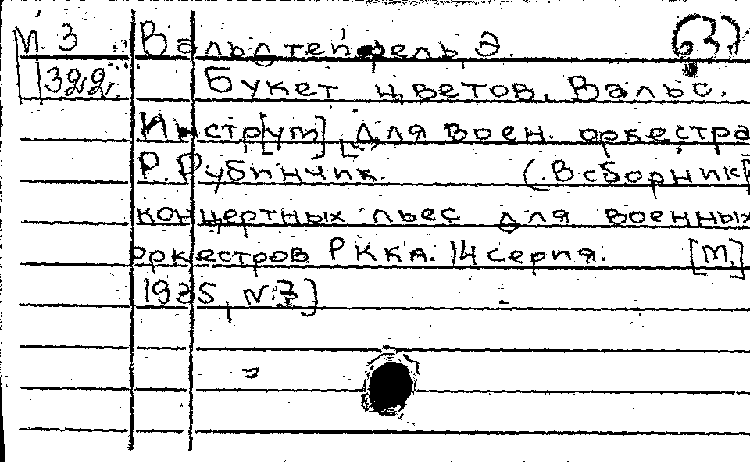 М. 3 Вальдтейфель Э. 63
322 Букет цветов. Вальс.
Инстр[ум]. для воен. оркестра
Р. Рубинчик. (.В сборник
концертных пьес для военных
оркестров РККА. 14 серия. [М.]
1935, N. 7)